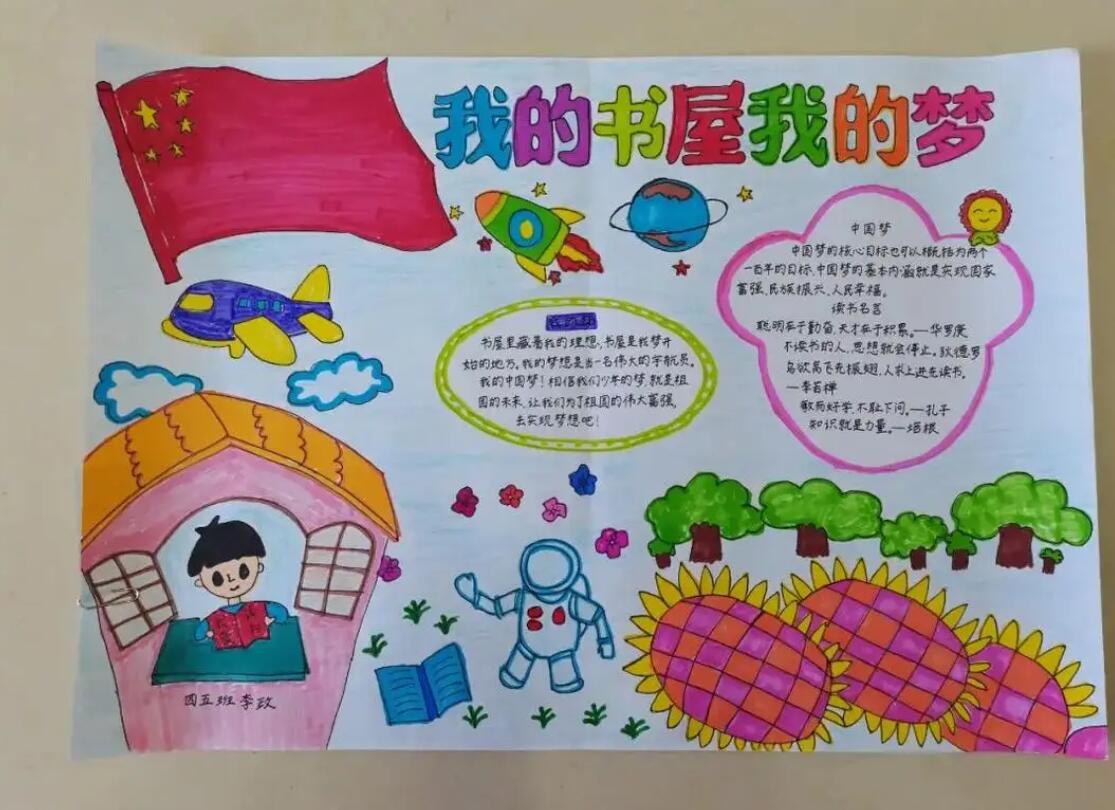 我的书屋我的梦
中国梦
中国梦的核心目标也可以概括为两个
一百年的目标,中国梦的基本内涵就是实现国家
富强、民族振兴、人民幸福。
读书名言
聪明在于勤奋,天才在于积累。—华罗庚
不读书的人,思想就会停止。狄德罗
鸟欲高飞先振翅,人求上进先读书。
—李若禅
敏而好学,不耻下问。—孔子
知识就是力量。—培根
书屋里藏着我的理想,书屋是我梦开
始的地方。我的梦想是当一名伟大的宇航员。
我的中国梦!相信我们少年的梦,就是祖
国的未来,让我们为了祖国的伟大富强,
去实现梦想吧!
四五班 李政